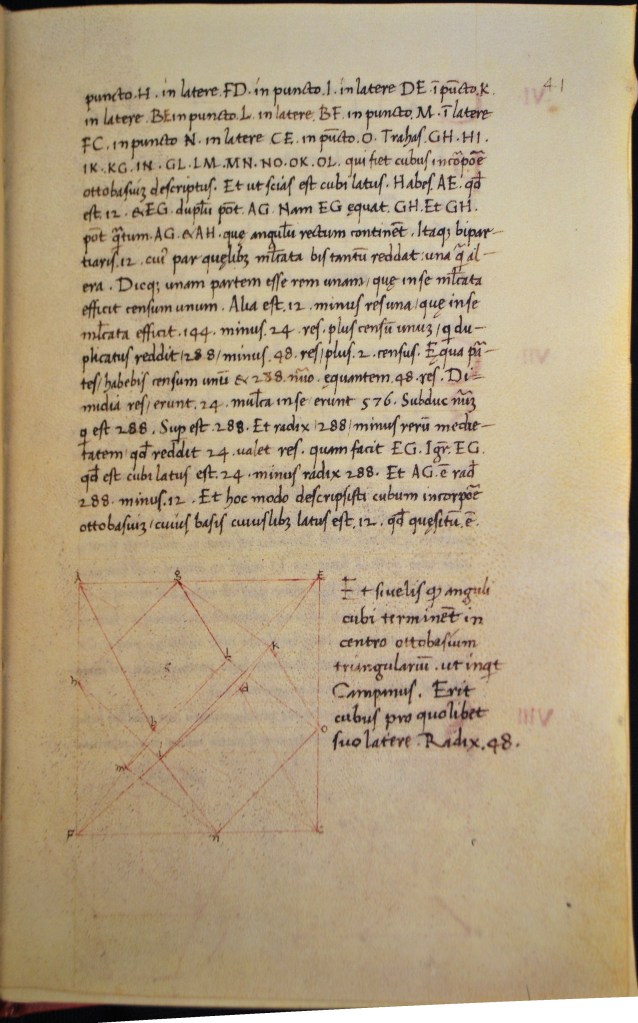 41
puncto. H. in latere. FD. in puncto. I. in latere DE. ī pūcto. K.
in latere. BE in puncto. L. in latere. BF. in puncto. M. ī latere
FC. in puncto N. in latere CE. in pūcto. O. Trahas. GH. HI.
IK. KG. IN. GL. LM. MN. NO. OK. OL. qui fiet cubus
descriptus. Et ut scias est cubi latus. Habes. AE. qd̄
est. 12. & EG. duplū pōt. AG. Nam EG ęquat. GH. Et GH.
pōt q̄tum. AG. & AH. quę angulū rectum continēt. Itaq; bipar-
tiaris. 12. par bis tantū reddat. una q̄ al-
era. Dicq; unam partem esse rem unam, quę in se ml̄cata
efficit censum unum. Alia est. 12. minus res una, quę in se
ml̄cata efficit. 144. minus. 24. res. plus censū / du-
plicatus reddit / 288 / minus. 48. res / plus. 2. census. Ęqua pā-
tes / habebis censum unū & 238. ęquantem. 48. res. Di-
midia res / erunt. 24. in se erunt 576. Subduc
q̄ est 288. Sup est. 288. Et radix / 288 / minus rerū medie-
tatem / qd̄ reddit 24. valet res. quam facit EG. Igr̄. EG.
qd̄ est cubi latus est. 24. minus radix 288. Et AG. ē rad̄
288. minus. 12. Et hoc modo descripsisti cubum
basis latus est. 12. qd̄ quęsitū. ē.
Et si velis q anguli
cubi terminēt in
centro ottobasium
triangulariū. ut inq̄t
Campanus. Erit
cubus pro quolibet
suo latere. Radix. 48.
A g E
L k
h d
b
o
m i
F n c